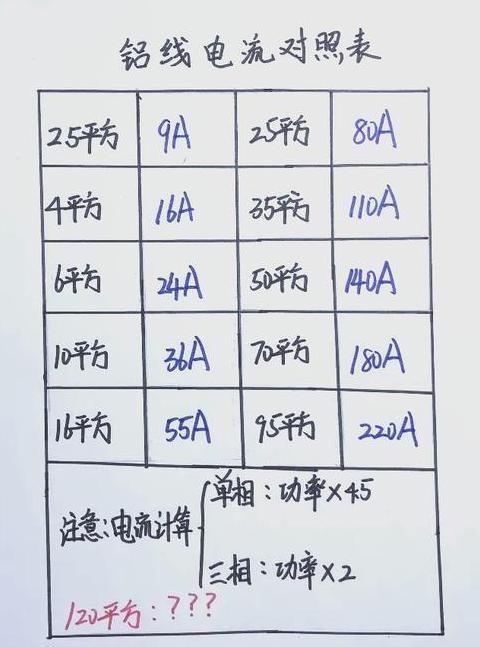 铝线电流对照表
2.5平方 9A 25平方 80A
4平方 16A 35平方 110A
6平方 24A 50平方 140A
10平方 36A 70平方 180A
16平方 55A 95平方 220A
单相：功率×4.5
注意：电流计算
三相：功率×2
120平方：???